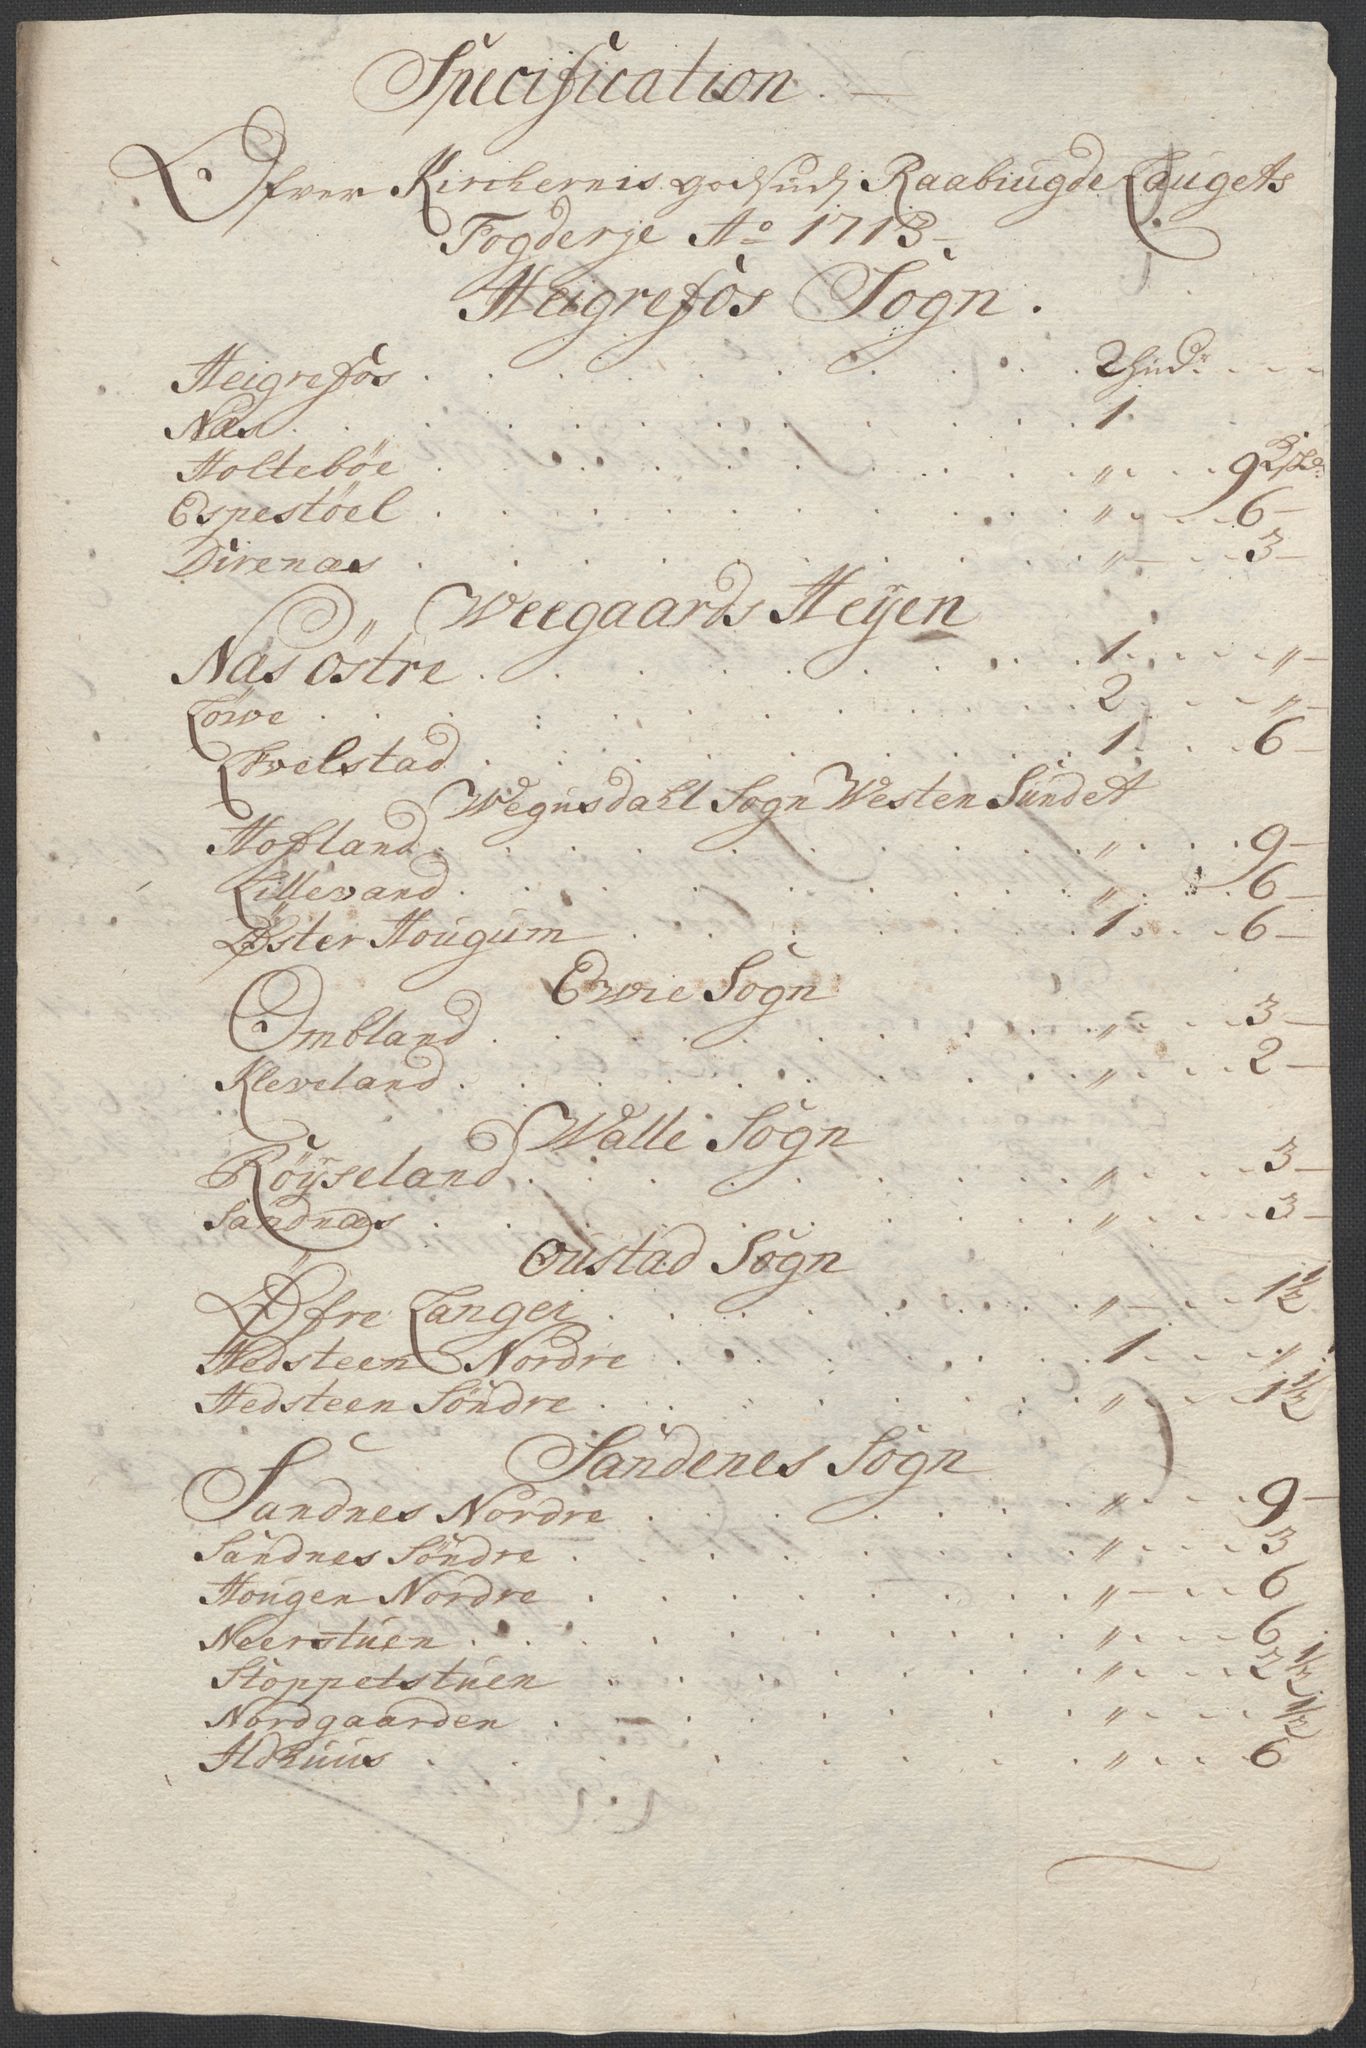 Specification.
Ofver Kirchernis godß udj Raabiugde Laugets
Fogderje Ao 1713
Heigrefos Sogn.
Heigrefos . . . 2 hudr
Næs . . . 1
Holtebøe . . . " . . 9
Espestøel . . . " . . 6
Direnæs . . . " . . 3
Weegaards Heÿen
Næs østre . . . 1 . . "
Løwe . . . 2 . . "
Lovelstad . . . 1 . . 6
Wegusdahl Sogn Westen Sundet
Hofland . . . " . . 9
Lillevand . . . " . . 6
Øster Hougum . . . 1 . . 6
Ewie Sogn
Ombland . . . " . . 3
Kleveland . . . " . . 2
Walle Sogn
Røyseland . . . " . . 3
Sandnæs . . . " . . 3
Oustad Sogn
Øfre Langei . . . " . . 1½
Hedsteen Nordre . . . 1 . . "
Hedsteen Søndre . . . " . . 1½
Sandenes Sogn
Sandnes Nordre . . . " . . 9
Sandnes Søndre . . . " . . 3
Hougen Nordre . . . " . . 6
Neerstuen . . . " . . 6
Stoppetstuen . . . " . . 2½
Nordgaarden . . . " . . ½
Ildhuus . . . " . . 6